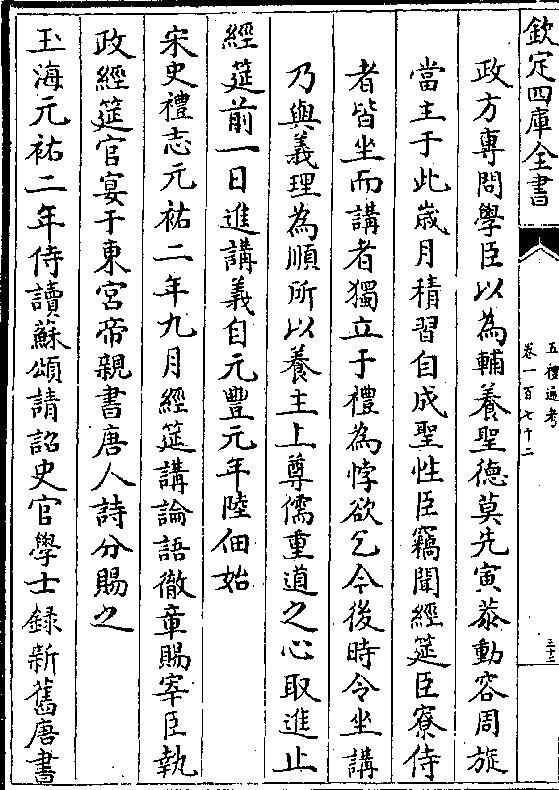 欽定四庫全書
五禮通考
卷一百七十二
三十三
政方專問學臣以為輔養聖德莫先寅恭動容周旋
當主于此歲月積習自成聖性臣竊聞經筵臣寮侍
者皆坐而講者獨立于禮為悖欲乞今後時令坐講
乃與義理為順所以養主上尊儒重道之心取進止
經筵前一日進講義自元豐元年陸佃始
宋史禮志元祐二年九月經筵講論語徹章賜宰臣執
政經筵官宴于東宮帝親書唐人詩分賜之
玉海元祐二年侍讀蘇頌請詔史官學士録新舊唐書